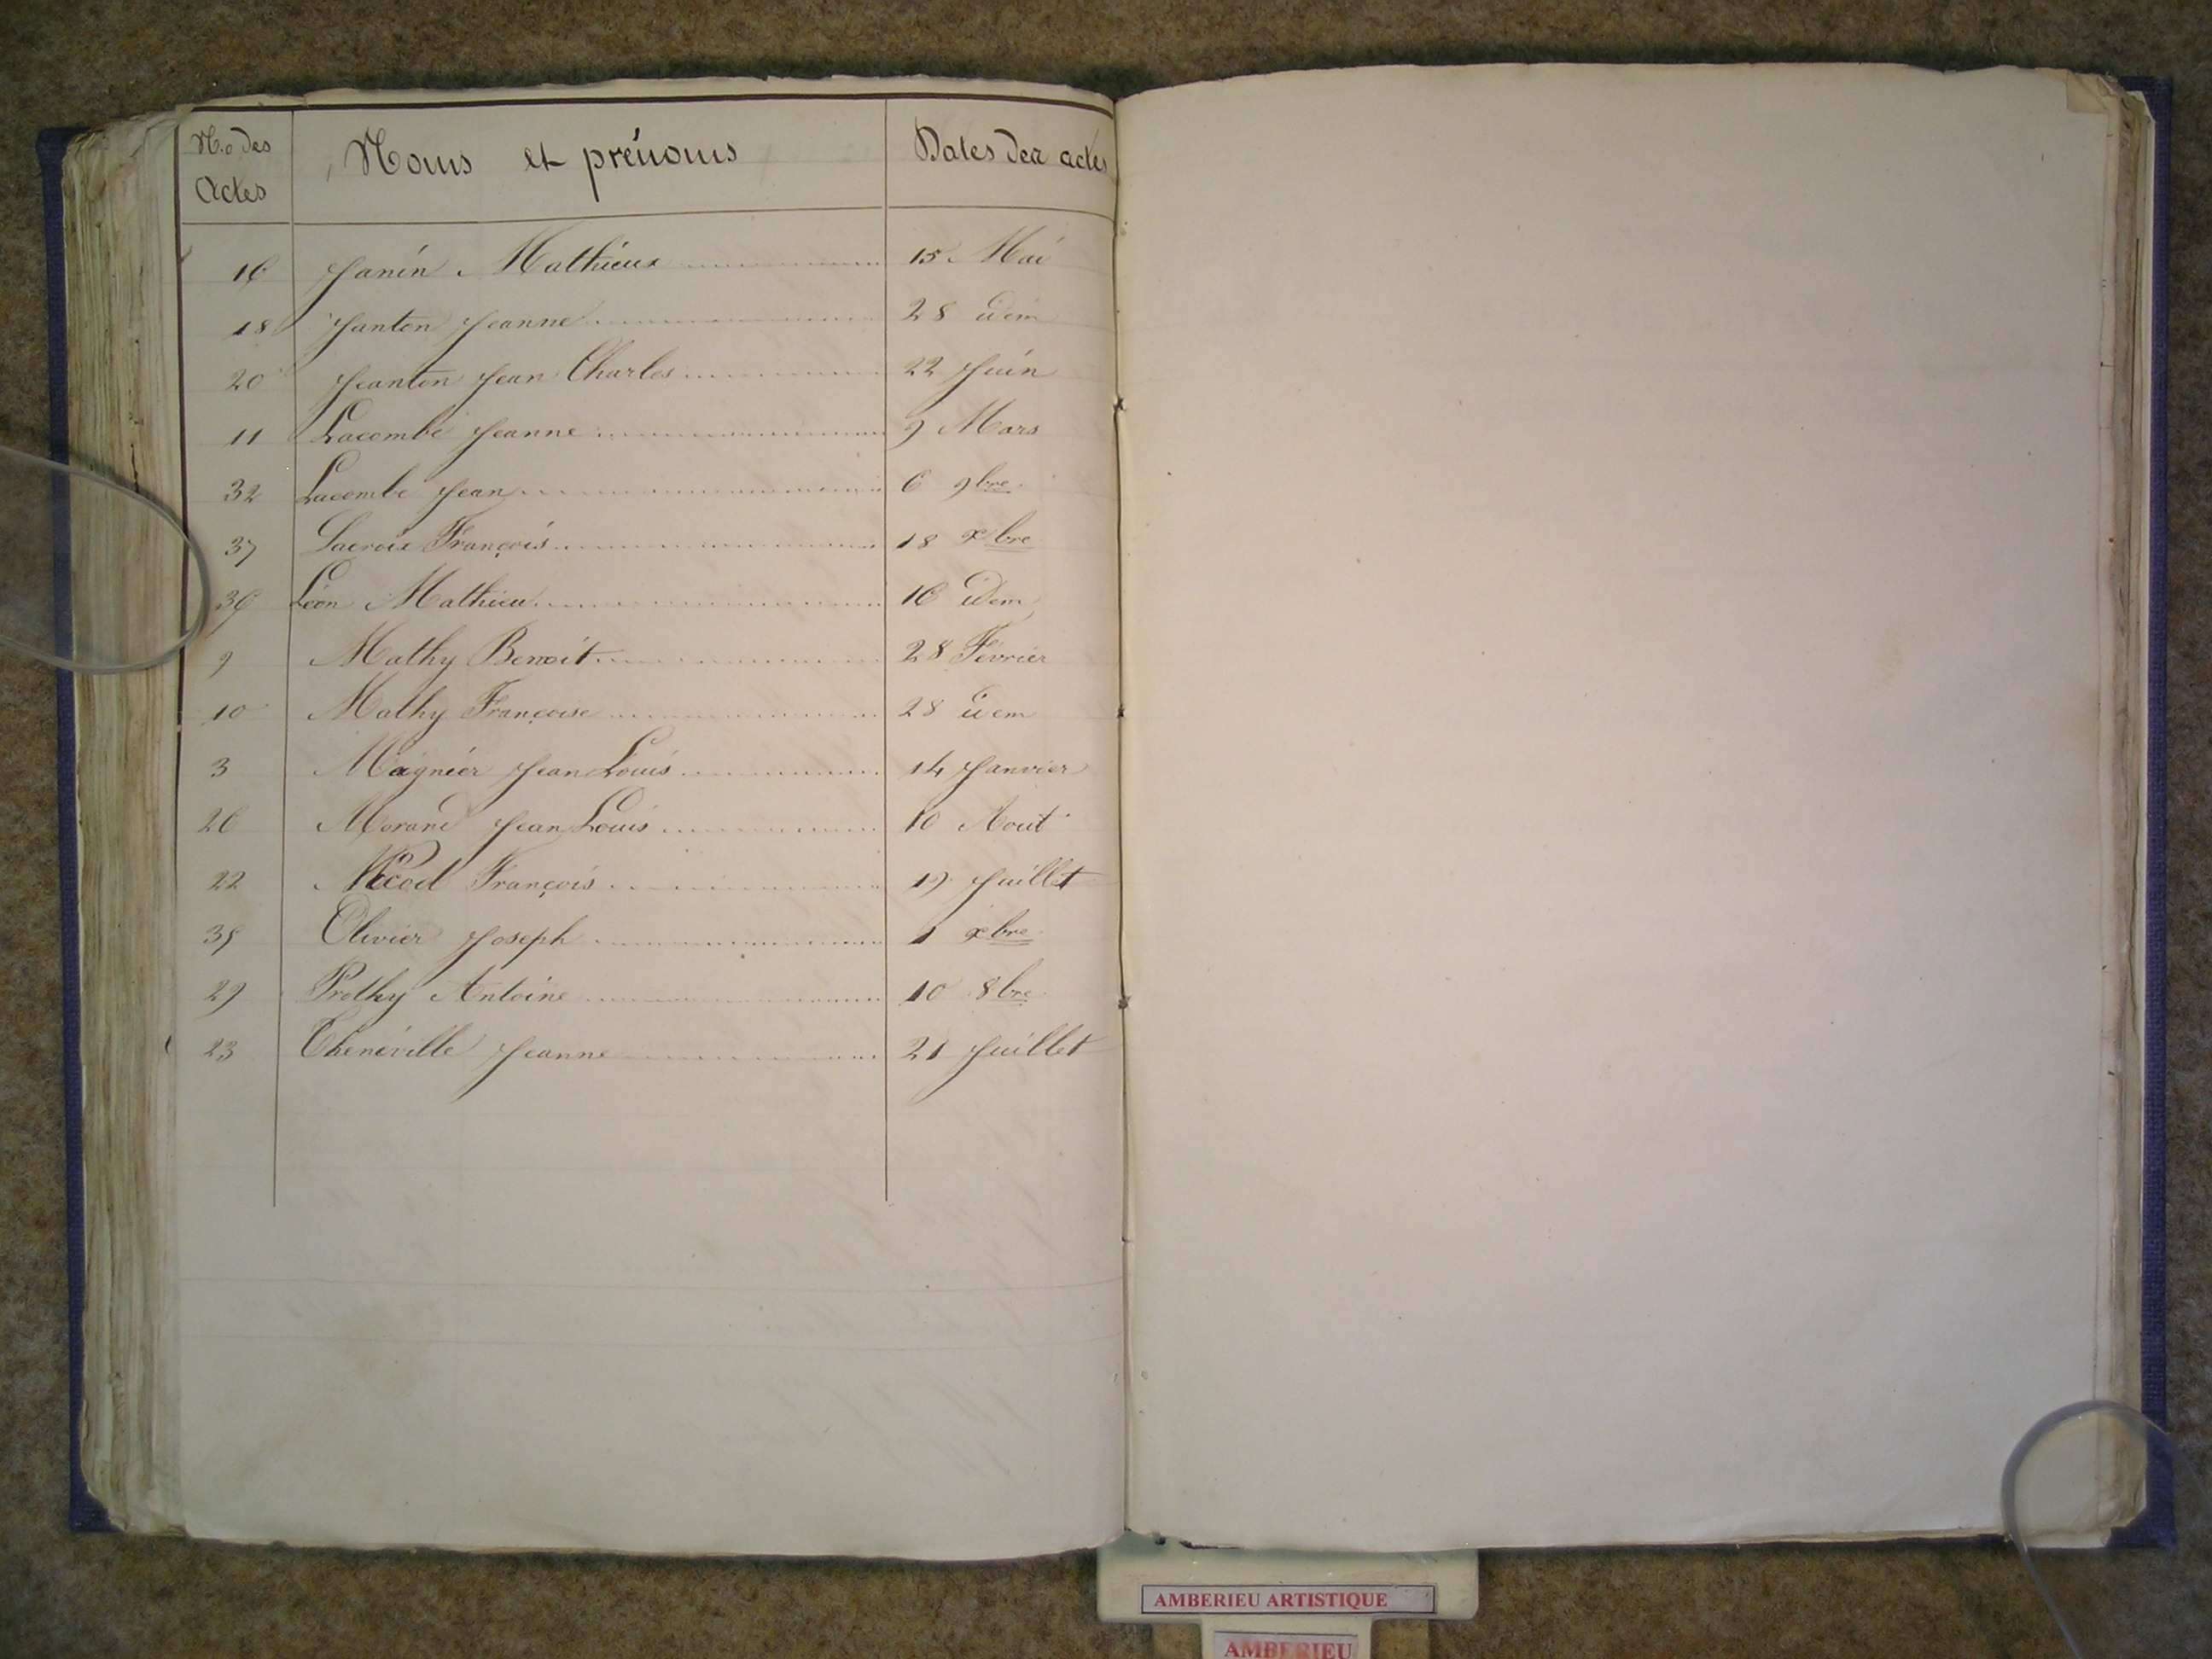 N.o des Actes Noms et prénoms Dates des actes
16 Janin Mathieux 15 Mai
18 Janton Jeanne 28 idem
20 Jeanton Jean Charles 22 Juin
11 Lacombe Jeanne 9 Mars
32 Lacombe Jean 6 9bre
37 Lacroix François 18 xbre
36 Léon Mathieu 16 idem
9 Mathy Benoit 28 Février
10 Mathy Françoise 28 idem
3 Magnier Jean Louis 14 Janvier
26 Morand Jean Louis 10 Aout
22 Nicod François 19 Juillet
35 Olivier Joseph 1 xbre
29 Prothy Antoine 10 8bre
23 Théneville Jeanne 21 Juillet
AMBERIEU ARTISTIQUE
AMBERIEU